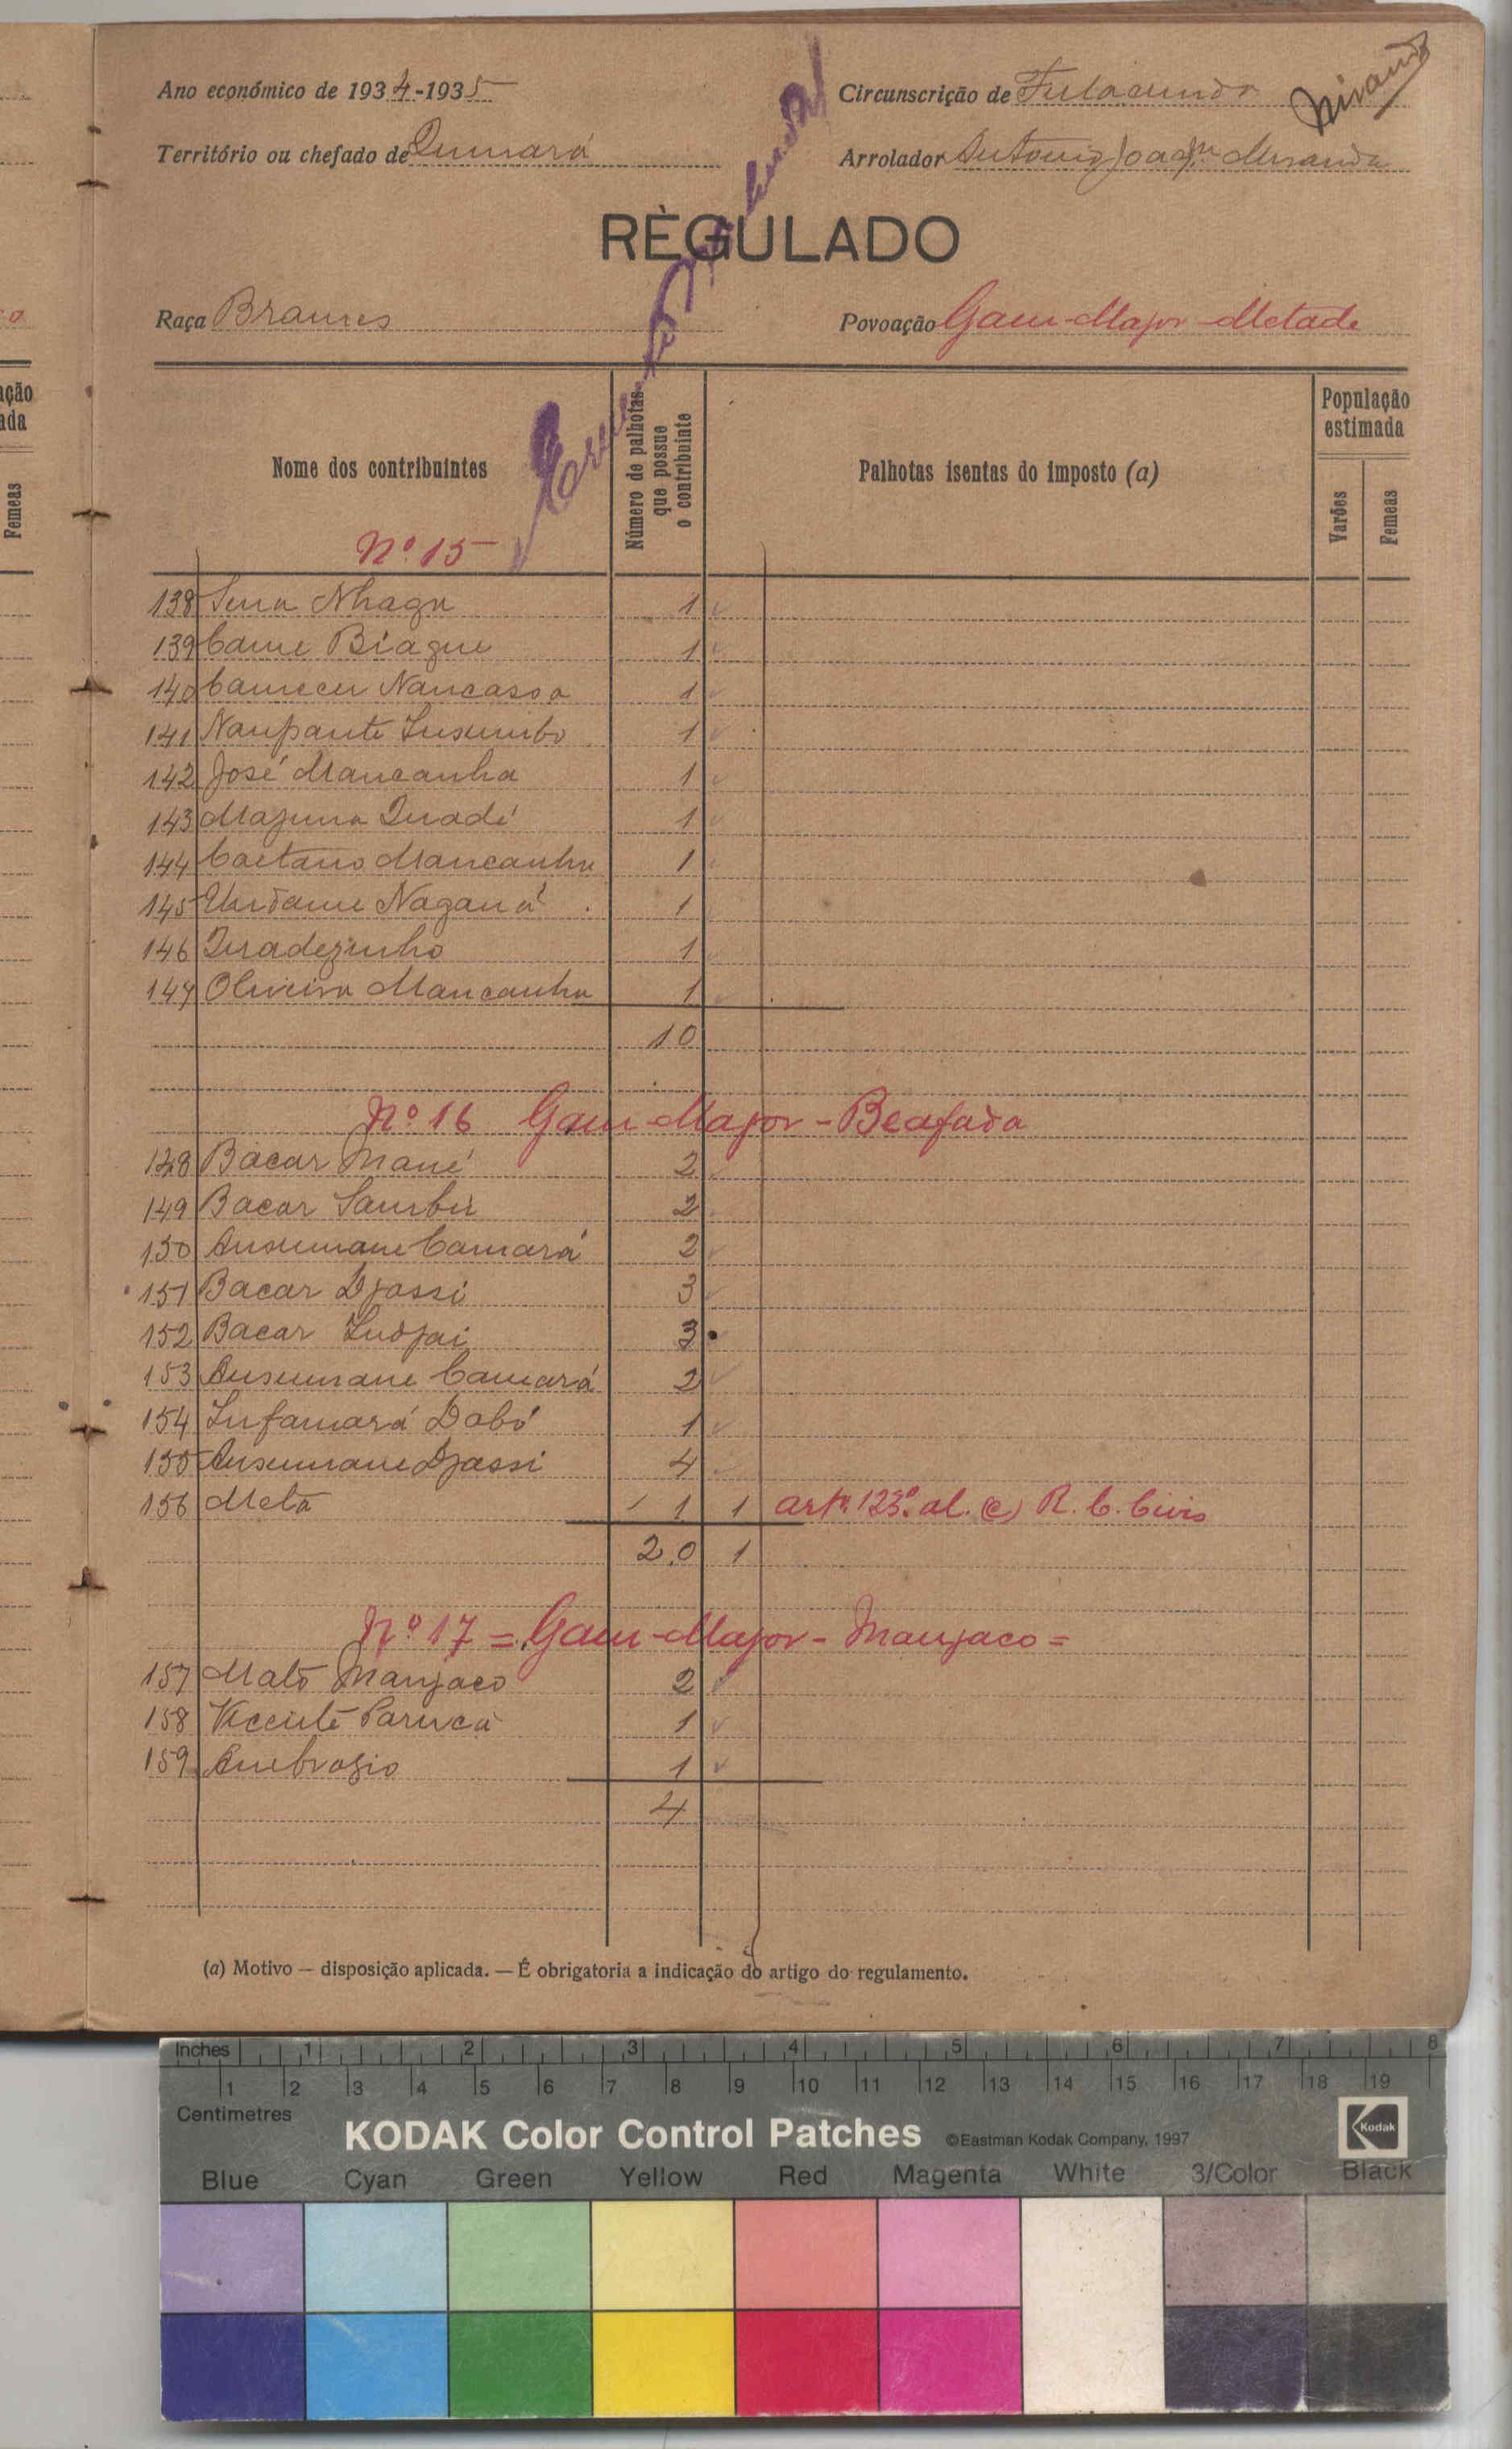 Ano económico de 1934-1935
Circunscrição de Fulacunda
Território ou chefado de Quinara
Arrolador Antonio Joaqm Miranda
RÈGULADO
Raça Brames
Povoação Gam-Major-Metade
Nome dos contribuintes
Número de palhotas que possue o contribuinte
Palhotas isentas do imposto (a)
População estimada
Varões
Femeas
ação
ada
Femeas
Nº 15
138 Nhaga 1
139 Came Biague 1
140 Nancassa 1
141 1
142 José Mancanha 1
143 Quadé 1
144 Caetano Mancanha 1
145 1
146 Quadezinho 1
147 Oliveira Mancanha 1
10
Nº 16 Gam-Major-Beafada
148 Bacar Mané 2
149 Bacar Sambú 2
150 Ansumane Camará 2
151 Bacar Djassi 3
152 Bacar Indjai 3
153 Ansumane Camará 2
154 Infamará Dabó 1
155 Ansumane Djassi 4
156 Meta 1 1 artº. 123º. al. (c) R. C. Civis
20 1
Nº 17 = Gam-Major-Manjaco =
157 Malo Manjaco 2
158 Vicente 1
159 Ambrozio 1
4
(a) Motivo — disposição aplicada. — É obrigatoria a indicação do artigo do regulamento.
Inches 1 2 3 4 5 6 7 8
1 2 3 4 5 6 7 8 9 10 11 12 13 14 15 16 17 18 19
Centimetres
KODAK Color Control Patches ©Eastman Kodak Company, 1997 Kodak
Blue Cyan Green Yellow Red Magenta White 3/Color Black